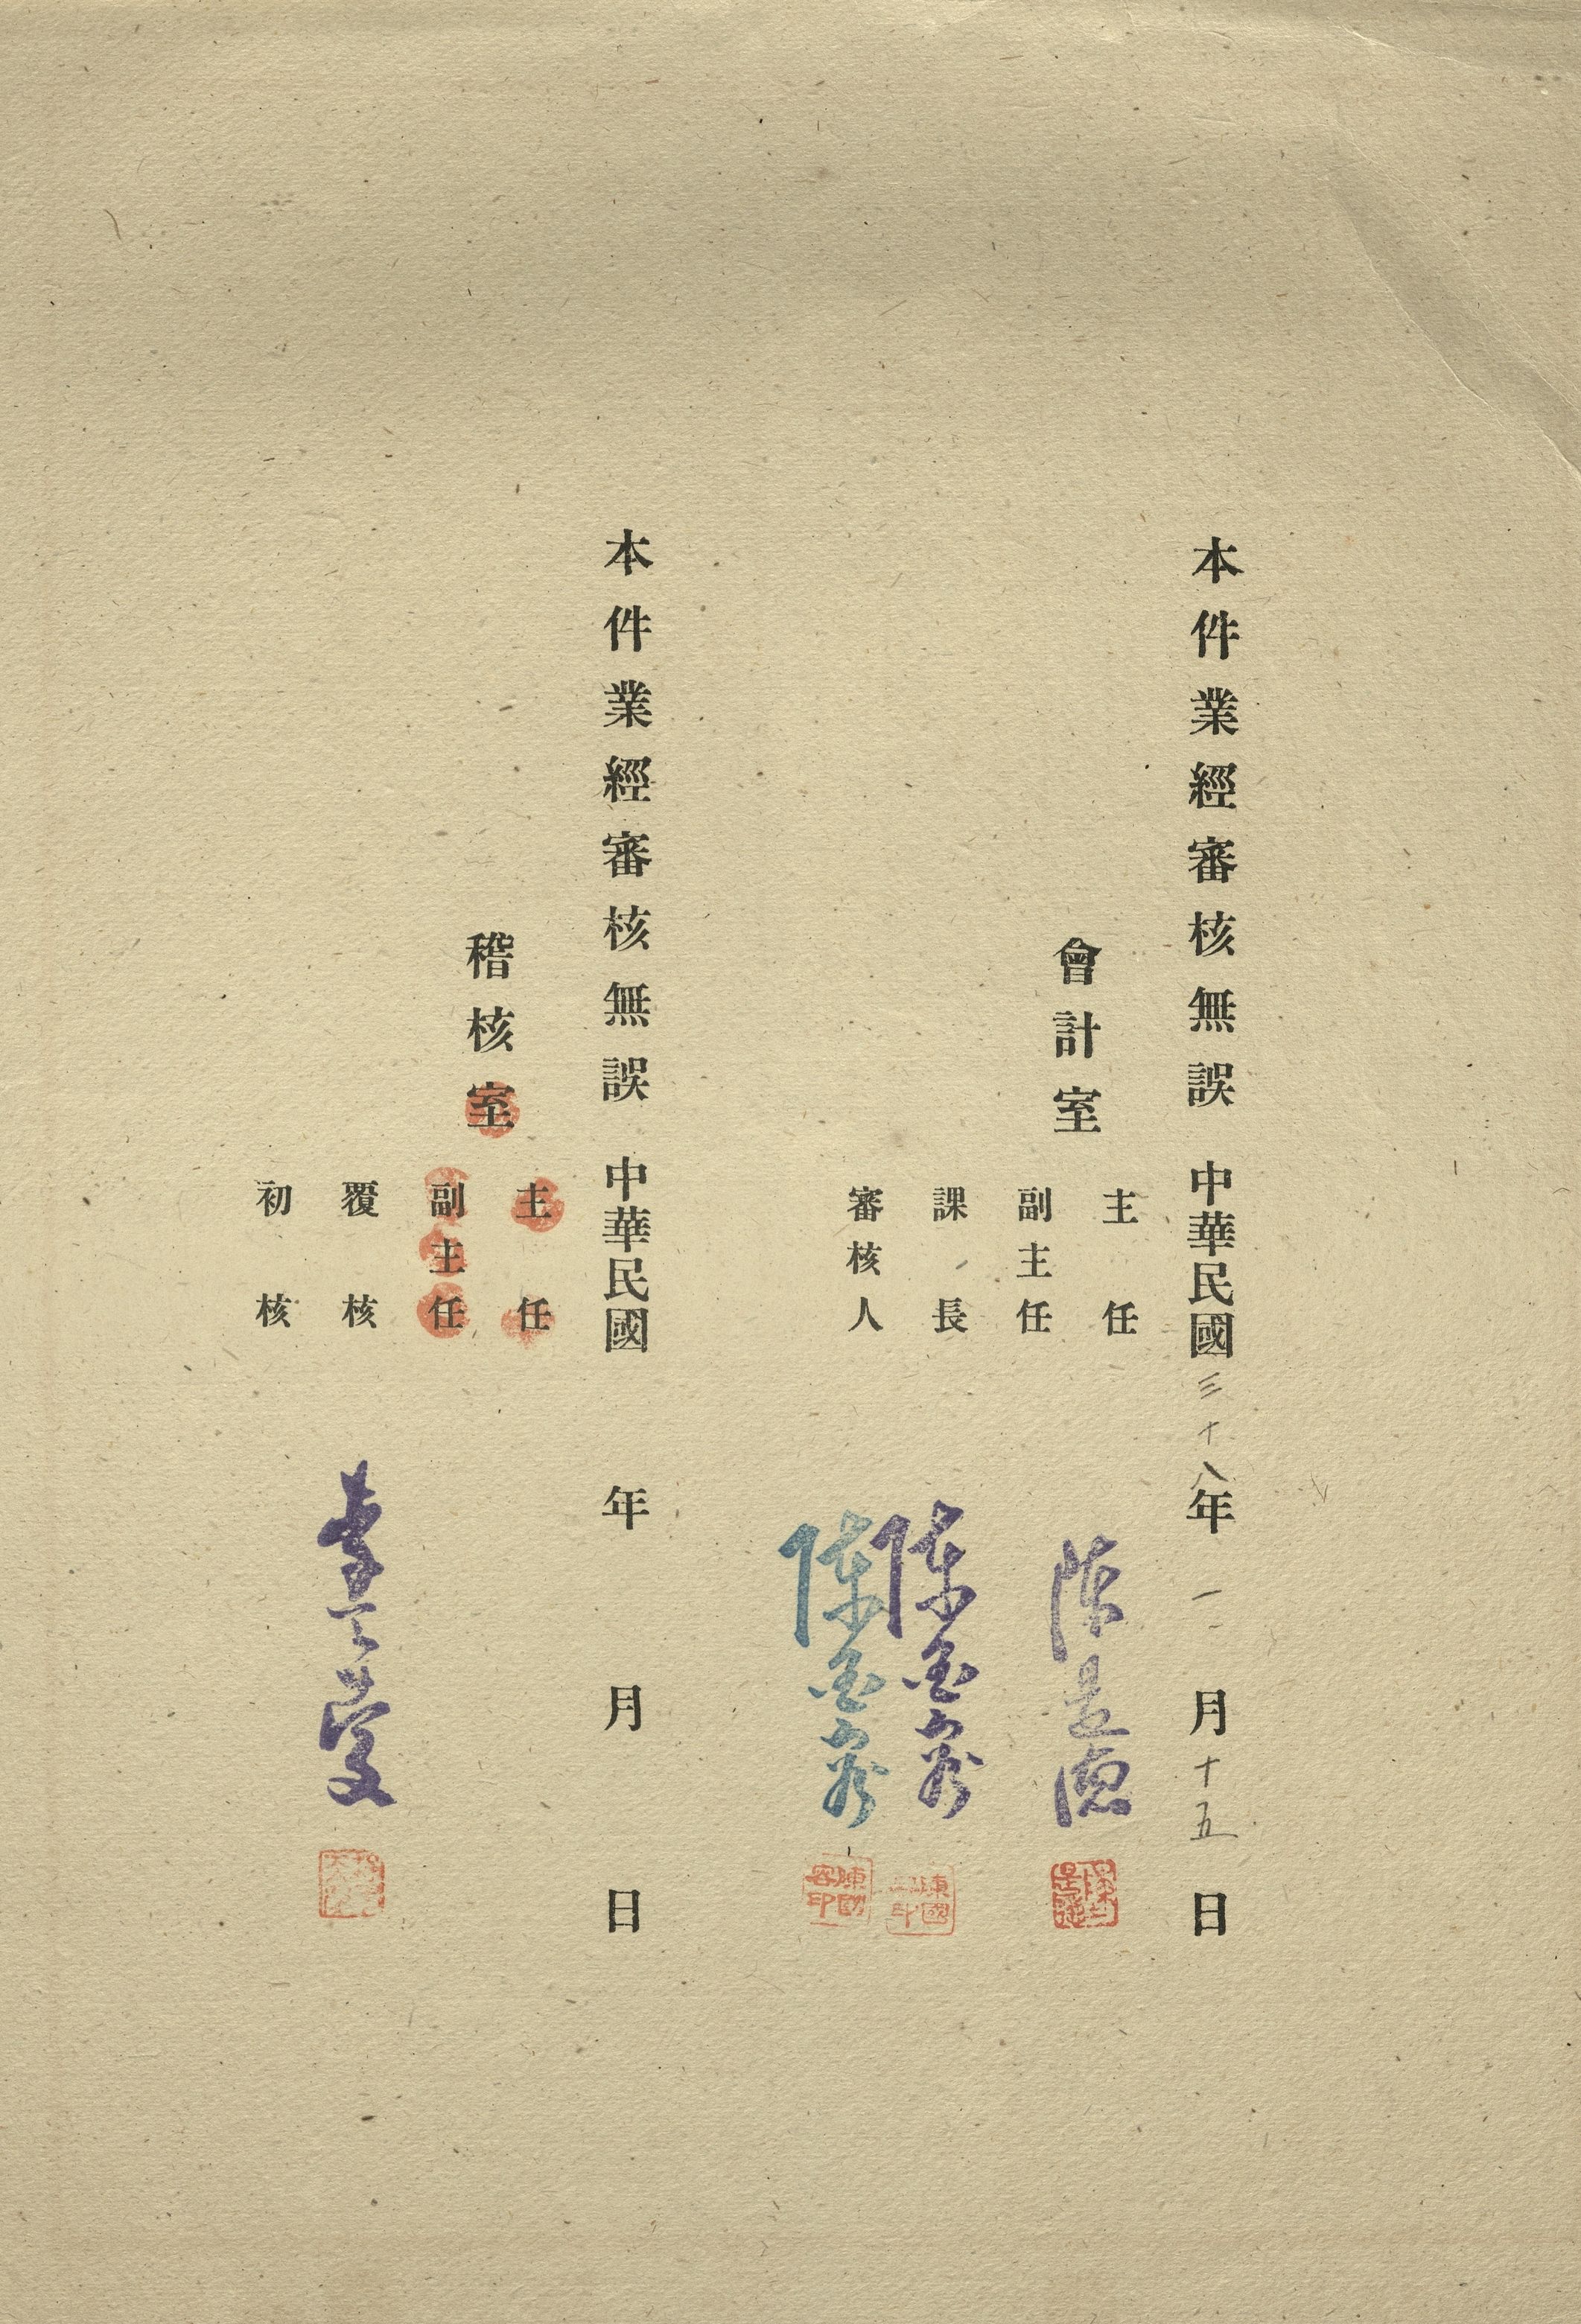 本件業經審核無誤 中華民國三十八年一月十五日
會計室
主任
副主任 陳
課長 陳國
審核人 陳國容印
本件業經審核無誤 中華民國 年 月 日
稽核室
主任
副主任
覆核 李
初核